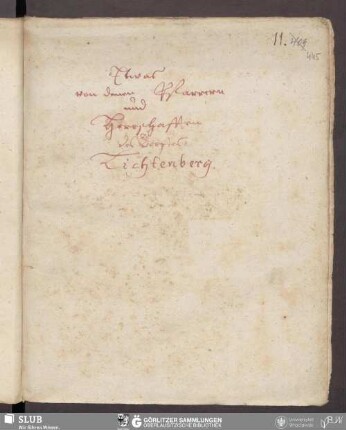 11.
445
Etwas
von denen Pfarrern
und
Herrschafften
des Dorfes
Lichtenberg.
SLUB
Wir führen Wissen.
GÖRLITZER SAMMLUNGEN
OBERLAUSITZISCHE BIBLIOTHEK